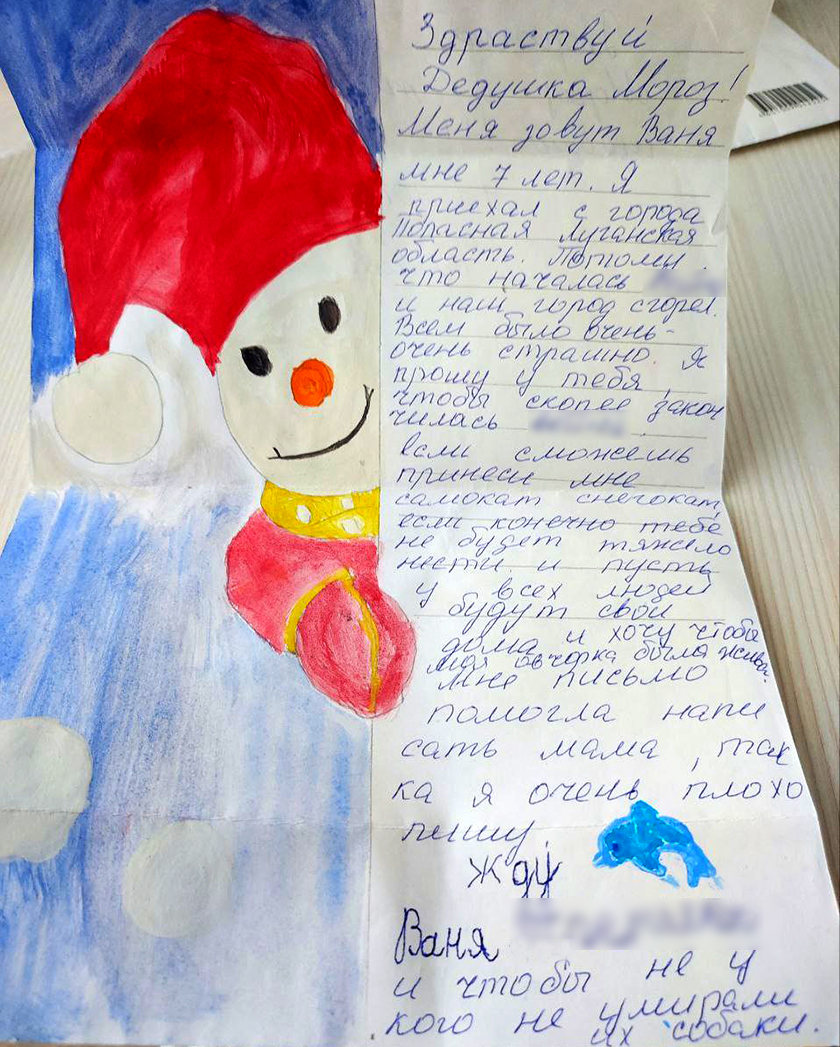 Здраствуй
Дедушка Мороз!
Меня зовут Ваня
мне 7 лет. Я
приехал с города
Попасная луганская
область. Потому
что началась
и наш город сгорел.
Всем было очень-
очень страшно. Я
прошу у тебя,
чтобы скорее закон
чилась
если сможешь
принеси мне
самокат снегокат,
если конечно тебе
не будет тяжело
нести. и пусть
у всех людей
будут свои
дома и хочу чтобы
моя овчорка была жива.
мне письмо
помогла напи
сать мама, так
ка я очень плохо
пишу
жду
Ваня
и чтобы не у
кого не умирали
их собаки.